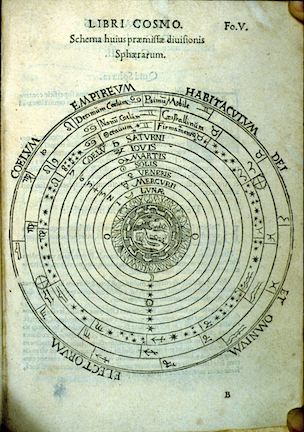 LIBRI COSMO. Fo.V.
Schema huius præmissæ diuisionis
Sphærarum.
COELVM EMPIREVM HABITACVLVM DEI
ET OMNIVM
ELECTORVM
Decimum Coelum Primũ Mobile
Nonũ Coelum Cristallinum
Octauum Firmamentũ
COELV
SATVRNI
IOVIS
MARTIS
SOLIS
VENERIS
MERCVRII
LVNÆ
B